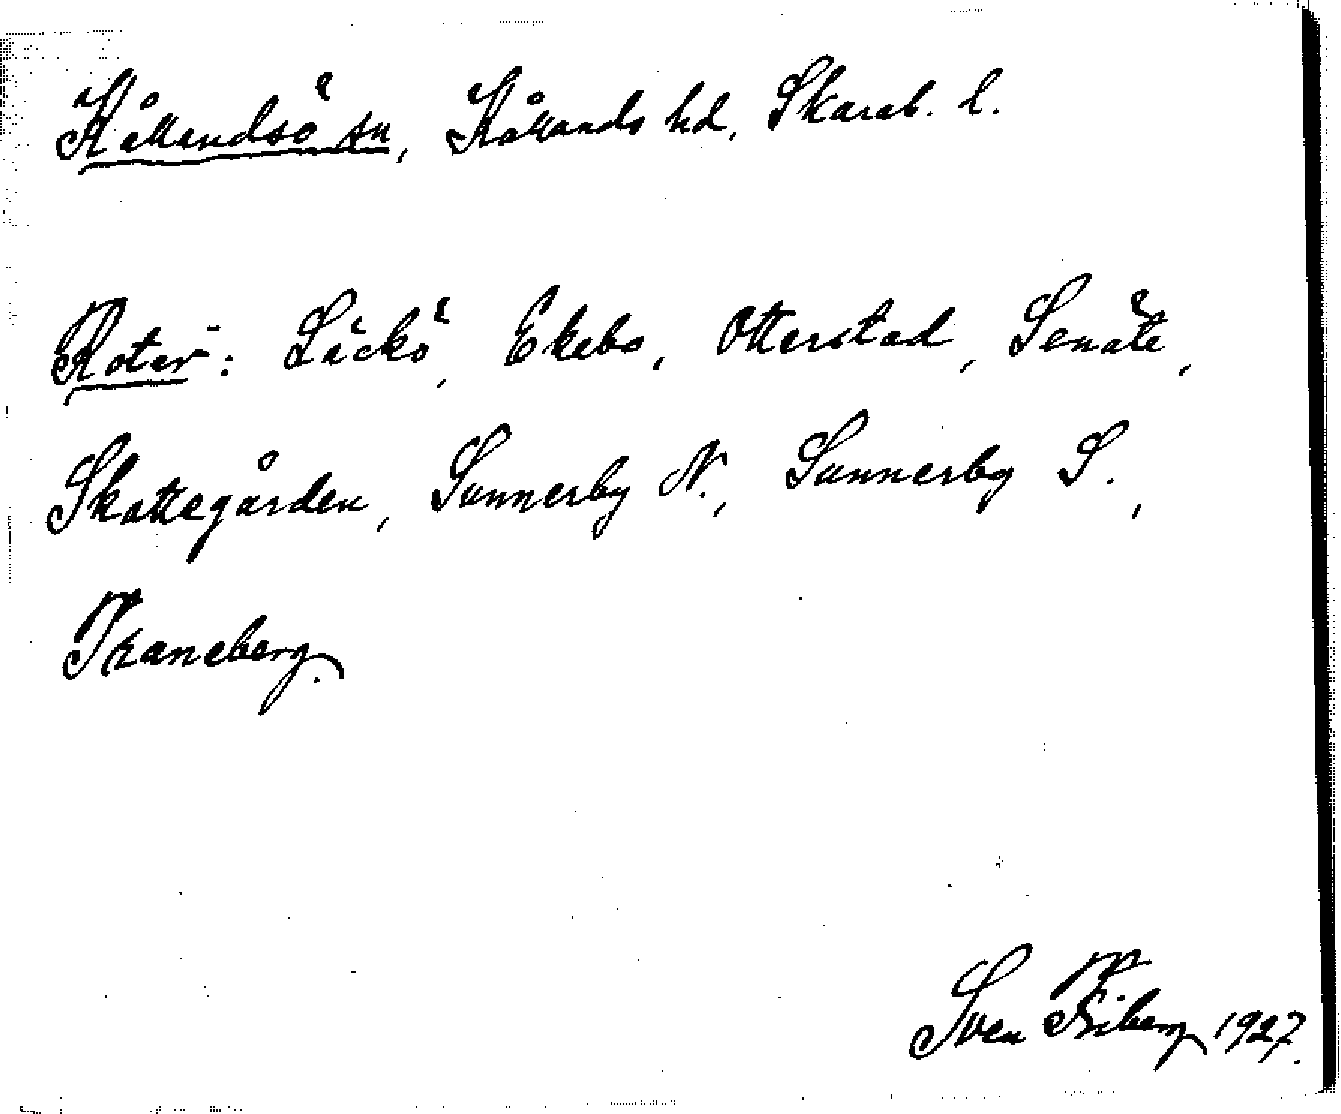 Kållandsö sn, Kållands hd, Skarab. l.
Roter: Läckö, Ekebo, Otterstad, Senäte,
Skattegården, Sunnerby N., Sunnerby S.,
Traneberg.
Sven Friberg 1927.